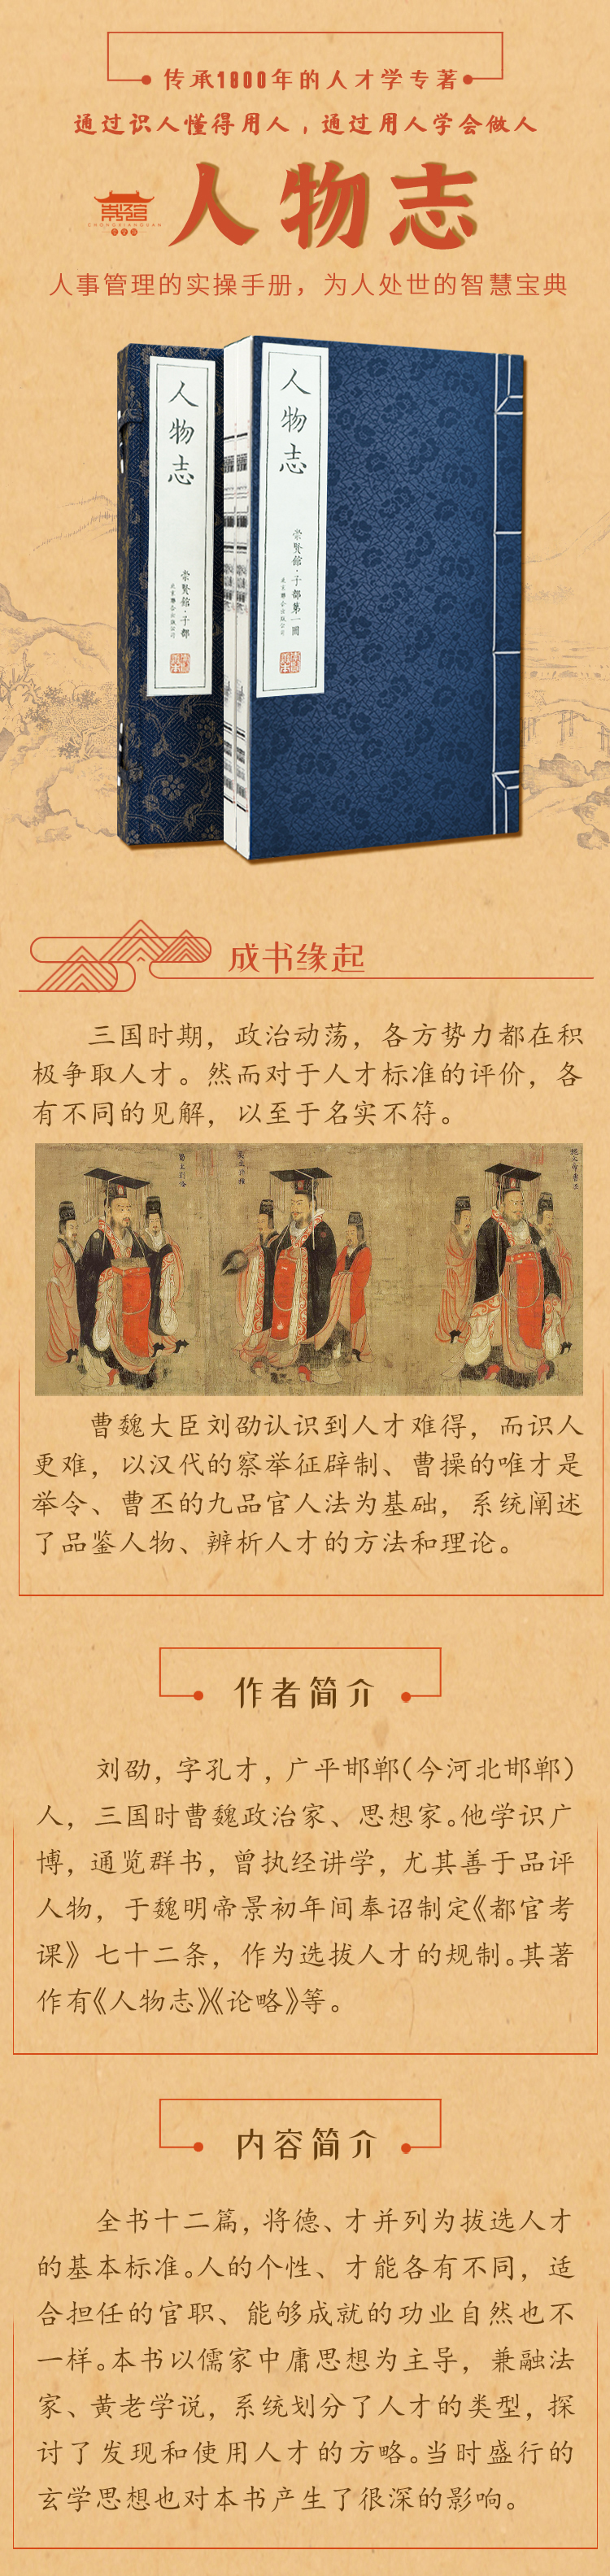 传承1800年的人才学专著
通过识人懂得用人，通过用人学会做人
崇贤馆
CHONGXIANGUAN
人物志
人事管理的实操手册，为人处世的智慧宝典
人物志
崇賢館·子部
北京聯合出版公司
人物志
崇賢館·子部第一函
北京聯合出版公司
成书缘起
三国时期，政治动荡，各方势力都在积
极争取人才。然而对于人才标准的评价，各
有不同的见解，以至于名实不符。
曹魏大臣刘劭认识到人才难得，而识人
更难，以汉代的察举征辟制、曹操的唯才是
举令、曹丕的九品官人法为基础，系统阐述
了品鉴人物、辨析人才的方法和理论。
作者简介
刘劭，字孔才，广平邯郸（今河北邯郸）
人，三国时曹魏政治家、思想家。他学识广
博，通览群书，曾执经讲学，尤其善于品评
人物，于魏明帝景初年间奉诏制定《都官考
课》七十二条，作为选拔人才的规制。其著
作有《人物志》《论略》等。
内容简介
全书十二篇，将德、才并列为拔选人才
的基本标准。人的个性、才能各有不同，适
合担任的官职、能够成就的功业自然也不
一样。本书以儒家中庸思想为主导，兼融法
家、黄老学说，系统划分了人才的类型，探
讨了发现和使用人才的方略。当时盛行的
玄学思想也对本书产生了很深的影响。